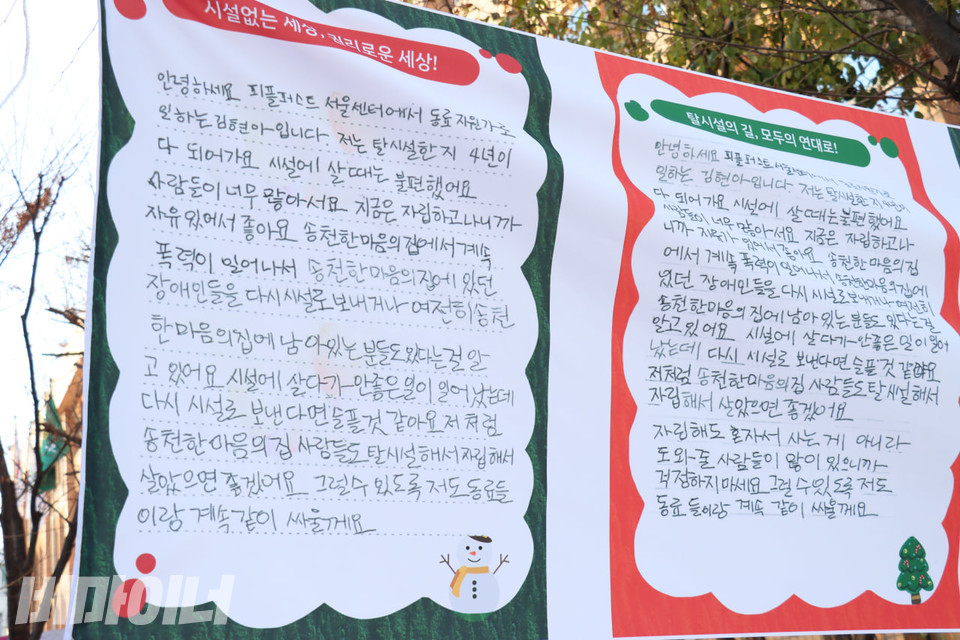 시설없는 세상, 권리로운 세상!
안녕하세요 피플퍼스트 서울센터에서 동료 지원가로
일하는 김현아입니다. 저는 탈시설한 지 4년이
다 되어가요 시설에 살 때는 불편했어요
사람들이 너무 많아서요 지금은 자립하고나니까
자유 있어서 좋아요 송천한마음의집에서 계속
폭력이 일어나서 송천한마음의집에 있던
장애인들을 다시 시설로 보내거나 여전히 송천
한마음의집에 남아있는 분들도 있다는걸 알
고 있어요 시설에 살다가 안좋은일이 일어났는데
다시 시설로 보낸다면 슬플것 같아요 저처럼
송천한마음의집 사람들도 탈시설해서 자립해서
살았으면 좋겠어요 그럴수 있도록 저도 동료들
이랑 계속 같이 싸울께요
탈시설의 길, 모두의 연대로!
안녕하세요 피플퍼스트
일하는 김현아입니다 저는 탈시설한지
다 되어가요 시설에 살 때는 불편했어요
사람들이 너무 많아서요 지금은 자립하고나
니까 자유가 있어서 좋아요 송천한마음의집
에서 계속 폭력이 일어나서 송천한마음의집에
있던 장애인들을 다시 시설로 보내거나 여전히
송천한마음의집에 남아있는 분들도 있다는걸
알고있어요 시설에 살다가 안좋은 일이 일어
났는데 다시 시설로 보낸다면 슬플것 같아요
저처럼 송천한마음의집 사람들도 탈시설해서
자립해서 살았으면 좋겠어요
자립해도 혼자서 사는게 아니라
도와줄 사람들이 많이 있으니까
걱정하지마세요 그럴 수 있도록 저도
동료들이랑 계속 같이 싸울께요
비마이너